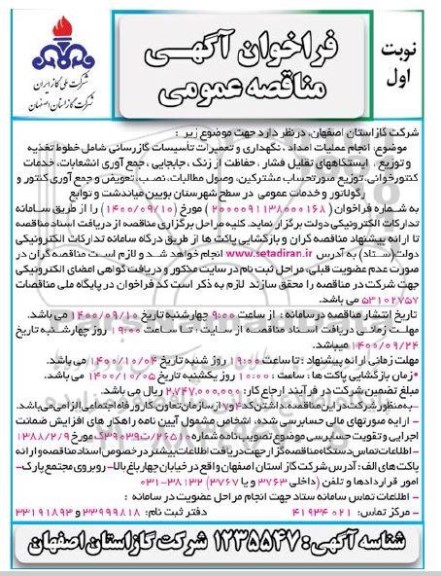 نوبت
اول
فراخوان آگهی
مناقصه عمومی
شرکت ملی گاز ایران
شرکت گاز استان اصفهان
شرکت گاز استان اصفهان، در نظر دارد جهت موضوع زیر :
موضوع: انجام عملیات امداد ، نگهداری و تعمیرات تأسیسات گازرسانی شامل خطوط تغذیه
و توزیع ، ایستگاههای تقلیل فشار ، حفاظت از زنگ ، جابجایی ، جمع آوری انشعابات، خدمات
کنتورخوانی، توزیع صورتحساب مشترکین، وصول مطالبات، نصب، تعویض و جمع آوری کنتور و
رگولاتور و خدمات عمومی در سطح شهرستان بویین میاندشت و توابع
به شماره فراخوان ( ۲۰۰۰۰۹۱۱۳۸۰۰۰۱۶۸ ) مورخ (۱۴۰۰/۰۹/۱۰) را از طریق سامانه
تدارکات الکترونیکی دولت برگزار نماید. کلیه مراحل برگزاری مناقصه از دریافت اسناد مناقصه
تا ارائه پیشنهاد مناقصه گران و بازگشایی پاکت ها از طریق درگاه سامانه تدارکات الکترونیکی
دولت (ستاد) به آدرس www.setadiran.ir انجام خواهد شد و لازم است مناقصه گران در
صورت عدم عضویت قبلی، مراحل ثبت نام در سایت مذکور و دریافت گواهی امضای الکترونیکی
جهت شرکت در مناقصه را محقق سازند. لازم به ذکر است کد فراخوان در پایگاه ملی مناقصات
۵۳۱۰۲۷۵۷ می باشد.
تاریخ انتشار مناقصه در سامانه : از ساعت ۹:۰۰ چهارشنبه تاریخ ۱۴۰۰/۰۹/۱۰ می باشد.
مهلت زمانی دریافت اسناد مناقصه از سایت : تا ساعت ۱۹:۰۰ روز چهارشنبه تاریخ
۱۴۰۰/۰۹/۲۴ میباشد.
مهلت زمانی ارائه پیشنهاد : تا ساعت ۱۹:۰۰ روز شنبه تاریخ ۱۴۰۰/۱۰/۰۴ می باشد.
*زمان بازگشایی پاکت ها : ساعت ۱۰:۰۰ روز یکشنبه تاریخ ۱۴۰۰/۱۰/۰۵ می باشد.
مبلغ تضمین شرکت در فرآیند ارجاع کار: ۲/۷۴۷/۰۰۰/۰۰۰ ریال می باشد.
به منظور شرکت در این مناقصه، داشتن کد ۴و۷ از سازمان تعاون کار و رفاه اجتماعی، الزامی می باشد.
- ارایه صورتهای مالی حسابرسی شده، اشخاص مشمول آیین نامه راهکارهای افزایش ضمانت
اجرایی و تقویت حسابرسی موضوع تصویب نامه شماره ۲۶۵۱۰/ت۳۹۰۳۹ک مورخ ۱۳۸۸/۲/۹
- اطلاعات تماس دستگاه مناقصه گزار جهت دریافت اطلاعات بیشتر در خصوص اسناد مناقصه و ارائه
پاکت های الف: آدرس شرکت گاز استان اصفهان واقع در خیابان چهارباغ بالا- روبروی مجتمع پارک-
امور قراردادها و تلفن (داخلی ۳۷۶۳ و یا ۳۷۶۷) ۳۸۱۳۲-۰۳۱
- اطلاعات تماس سامانه ستاد جهت انجام مراحل عضویت در سامانه :
- مرکز تماس: ۰۲۱-۴۱۹۳۴ دفتر ثبت نام: ۳۳۹۹۹۸۱۸ و ۳۳۱۹۱۸۹۳
شناسه آگهی : ۱۲۳۵۵۴۷ شرکت گاز استان اصفهان